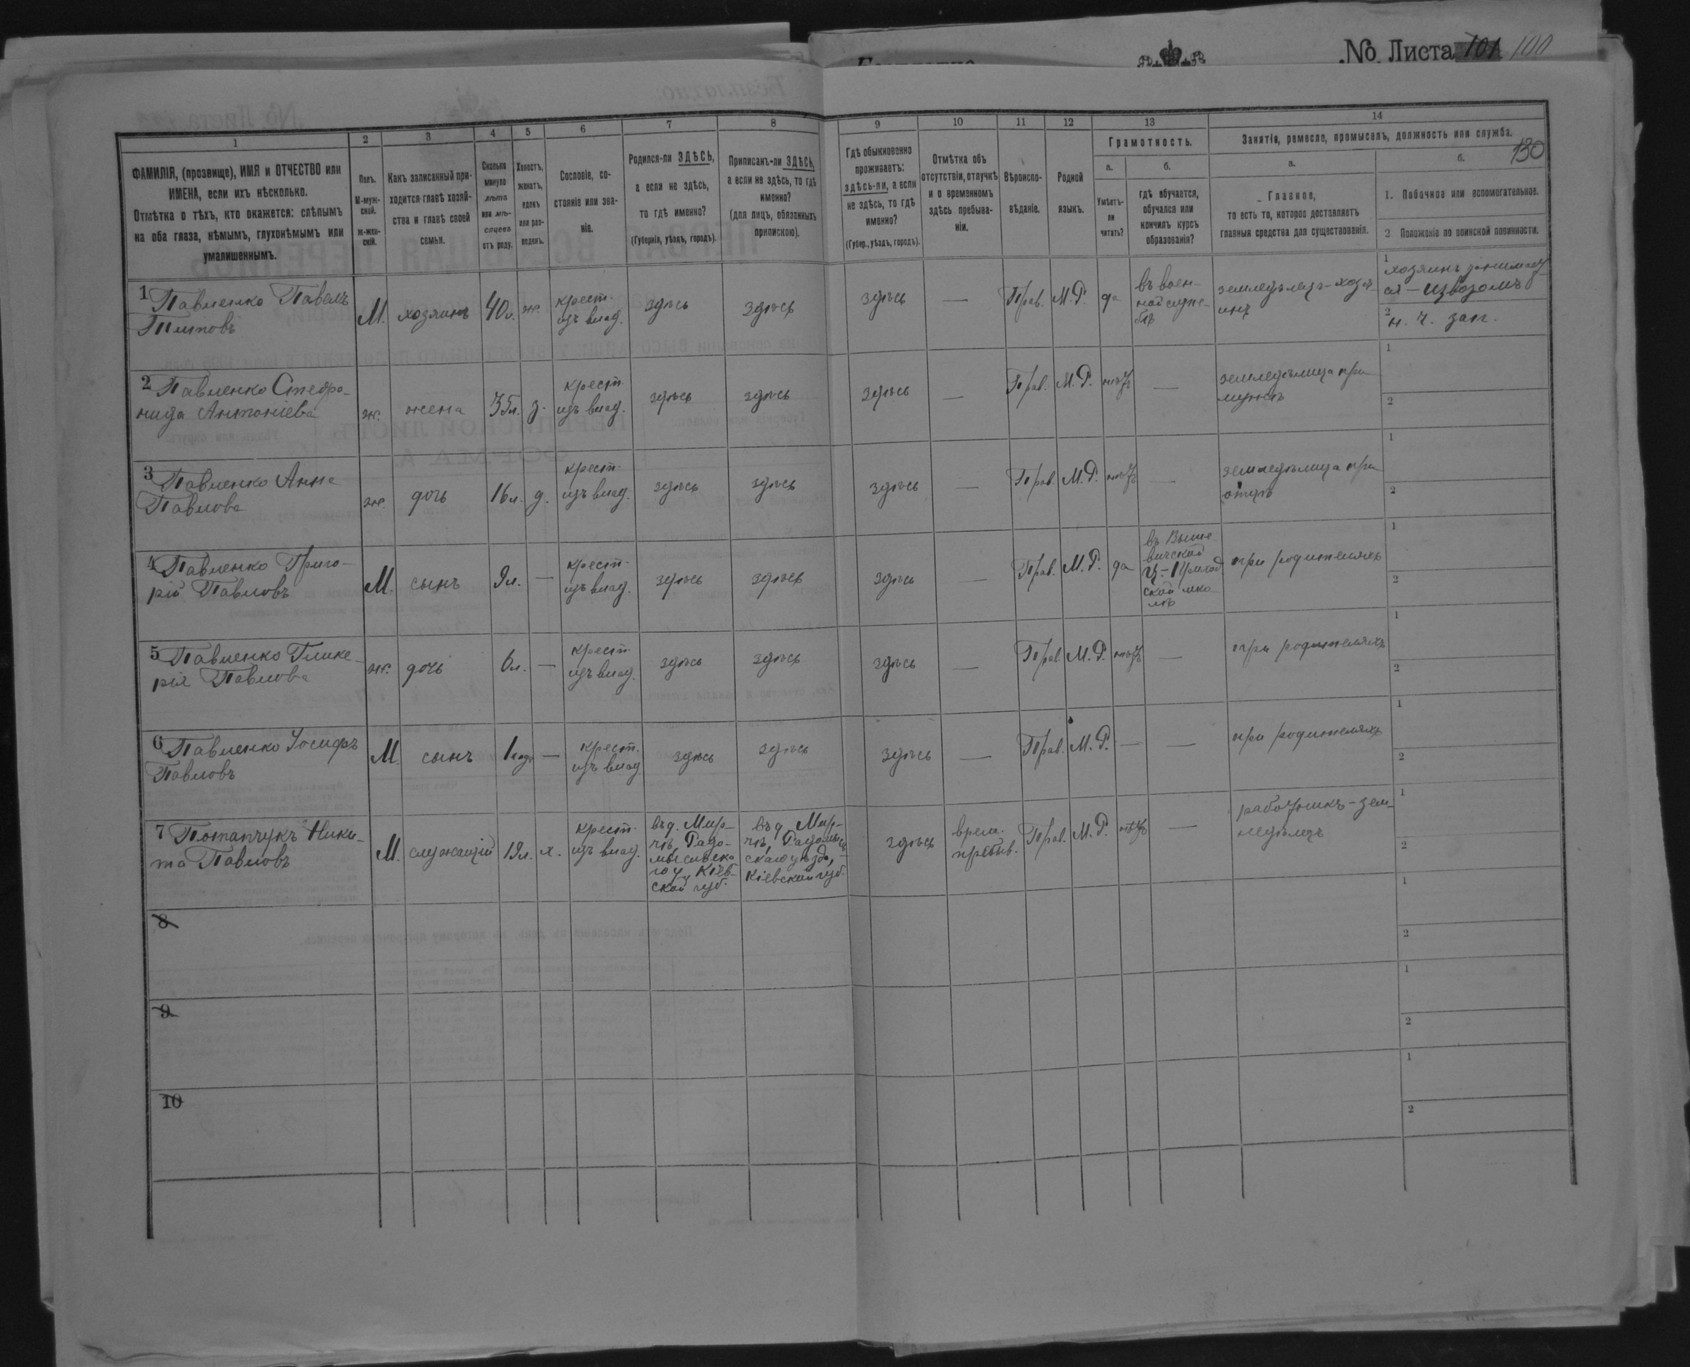 № Листа 101 100
130
1 2 3 4 5 6 7 8 9 10 11 12 13 14
ФАМИЛІЯ, (прозвище), ИМЯ и ОТЧЕСТВО или
ИМЕНА, если ихъ нѣсколько.
Отмѣтка о тѣхъ, кто окажется: слѣпымъ
на оба глаза, нѣмымъ, глухонѣмымъ или
умалишеннымъ.
Полъ.
М-муж-
ской.
Ж-жен-
скій.
Какъ записанный при-
ходится главѣ хозяй-
ства и главѣ своей
семьи.
Сколько
минуло
лѣтъ
или мѣ-
сяцевъ
отъ роду.
Холостъ,
женатъ,
вдовъ
или раз-
веденъ.
Сословіе, со-
стояніе или зва-
ніе.
Родился-ли ЗДѢСЬ,
а если не здѣсь,
то гдѣ именно?
(Губернія, уѣздъ, городъ).
Приписанъ-ли ЗДѢСЬ,
а если не здѣсь, то гдѣ
именно?
(для лицъ, обязанныхъ
припискою).
Гдѣ обыкновенно
проживаетъ:
здѣсь-ли, а если
не здѣсь, то гдѣ
именно?
(Губер., уѣздъ, городъ).
Отмѣтка объ
отсутствіи, отлучкѣ
и о временномъ
здѣсь пребыва-
ніи.
Вѣроиспо-
вѣданіе.
Родной
языкъ.
Грамотность.
а.
Умѣетъ-
ли
читать?
б.
гдѣ обучается,
обучался или
кончилъ курсъ
образованія?
Занятія, ремесло, промыселъ, должность или служба.
а.
Главное,
то есть то, которое доставляетъ
главныя средства для существованія.
б.
1. Побочное или вспомогательное.
2 Положеніе по воинской повинности.
1 Павленко Павелъ
Титовъ
М. хозяинъ 40 л. ж. крест. изъ влад. здѣсь здѣсь здѣсь — Прав. М.Р. да
въ воен-
ной служ-
бѣ
земледѣлецъ-хозя-
инъ
1 хозяинъ занимает-
ся — извозомъ
2 н. ч. зап.
2 Павленко Стефа-
нида Антоніева
ж. жена 35 л. з. крест. изъ влад. здѣсь здѣсь здѣсь — Прав. М.Р. нѣтъ —
земледѣлица при
мужѣ
1
2
3 Павленко Анна
Павлова
ж. дочь 16 л. д. крест. изъ влад. здѣсь здѣсь здѣсь — Прав. М.Р. нѣтъ —
земледѣлица при
отцѣ
1
2
4 Павленко Григо-
рій Павловъ
М. сынъ 9 л. — крест. изъ влад. здѣсь здѣсь здѣсь — Прав. М.Р. да
ской шко-
лѣ
при родителяхъ
1
2
5 Павленко Глике-
рія Павлова
ж. дочь 6 л. — крест. изъ влад. здѣсь здѣсь здѣсь — Прав. М.Р. нѣтъ —
при родителяхъ
1
2
6 Павленко Іосифъ
Павловъ
М. сынъ 1 годъ — крест. изъ влад. здѣсь здѣсь здѣсь — Прав. М.Р. — —
при родителяхъ
1
2
7 Потапчукъ Ники-
та Павловъ
М. служащій 19 л. х. крест. изъ влад.
въ д. Мир-
чѣ, Радо-
мысльска-
го у., Кіев-
ской губ.
въ д. Мир-
чѣ, Радомысль-
скаго уѣзда,
Кіевской губ.
здѣсь
врем.
пребыв.
Прав. М.Р. нѣтъ —
работникъ-зем-
ледѣлецъ
1
2
8
1
2
9
1
2
10
1
2